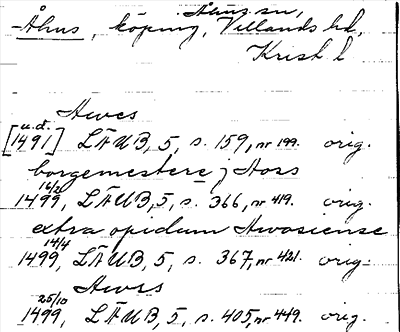 Åhus sn,
Åhus, köping, Villands hd,
Krist l
Awes
[u.d. 1491] LÄUB, 5, s. 159, nr 199. orig.
borgemestere j Aoss
16/2 1499, LÄUB, 5, s. 366, nr 419. orig.
extra opidum Awosiense
14/4 1499, LÄUB, 5, s. 367, nr 421. orig.
Awss
25/10 1499, LÄUB, 5, s. 405, nr 449. orig.